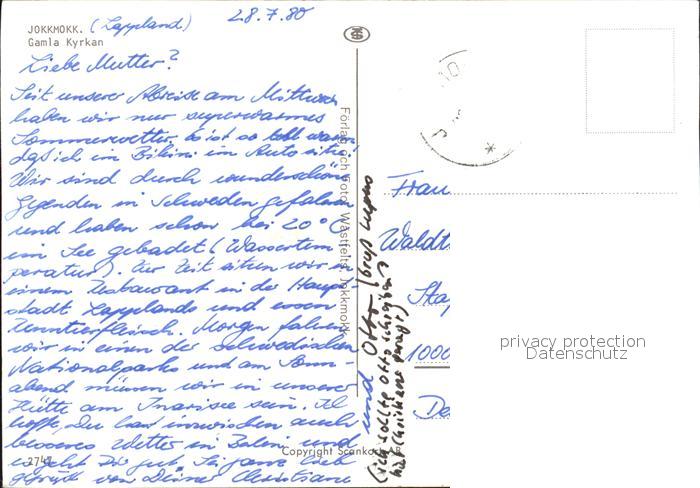 JOKKMOKK. (Lappland) 28.7.80
Gamla Kyrkan
Liebe Mutter?
Seit unserer Abreise am Mittwoch
haben wir nur superwarmes
Sommerwetter. Es ist so toll warm
daß ich im Bikini im Auto sitze!
Wir sind durch wunderschöne
Gegenden in Schweden gefahren
und haben schon bei 20°C
im See gebadet (Wassertem
peratur). Zur Zeit sitzen wir in
einem in der Haupt
stadt Lapplands und essen
Renntierfleisch. Morgen fahren
wir in einen der schwedischen
Nationalparks und am Sonn-
abend müssen wir in unserer
Hütte am Inarisee sein. Ich
hoffe, Du hast inzwischen auch
besseres Wetter in Berlin und
es geht Dir gut. Sei ganz lieb
gegrüßt von Deiner Christiane
2747
Copyright Scankort AB
Förlag och Foto: Västfelts, Jokkmokk
und Otto. (
(ich sollte Otto schreiben
hat Christiane gesagt)
Frau
Waldt
Sta
1000
privacy protection
Datenschutz